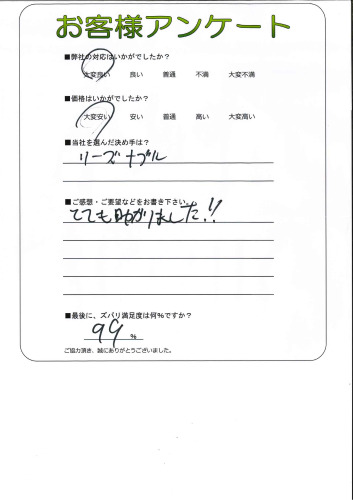 お客様アンケート
■弊社の対応はいかがでしたか？
大変良い 良い 普通 不満 大変不満
■価格はいかがでしたか？
大変安い 安い 普通 高い 大変高い
■当社を選んだ決め手は？
リーズナブル
■ご感想・ご要望などをお書き下さい。
とても助かりました!!
■最後に、ズバリ満足度は何%ですか？
99 %
ご協力頂き、誠にありがとうございました。